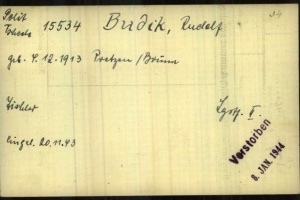 Polit
Tscheche 15534 Budik, Rudolf
geb. 4.12.1913 Pretzen/Brünn
Tischler
Lgst. I.
eingel. 20.11.43
Verstorben
8. JAN. 1944